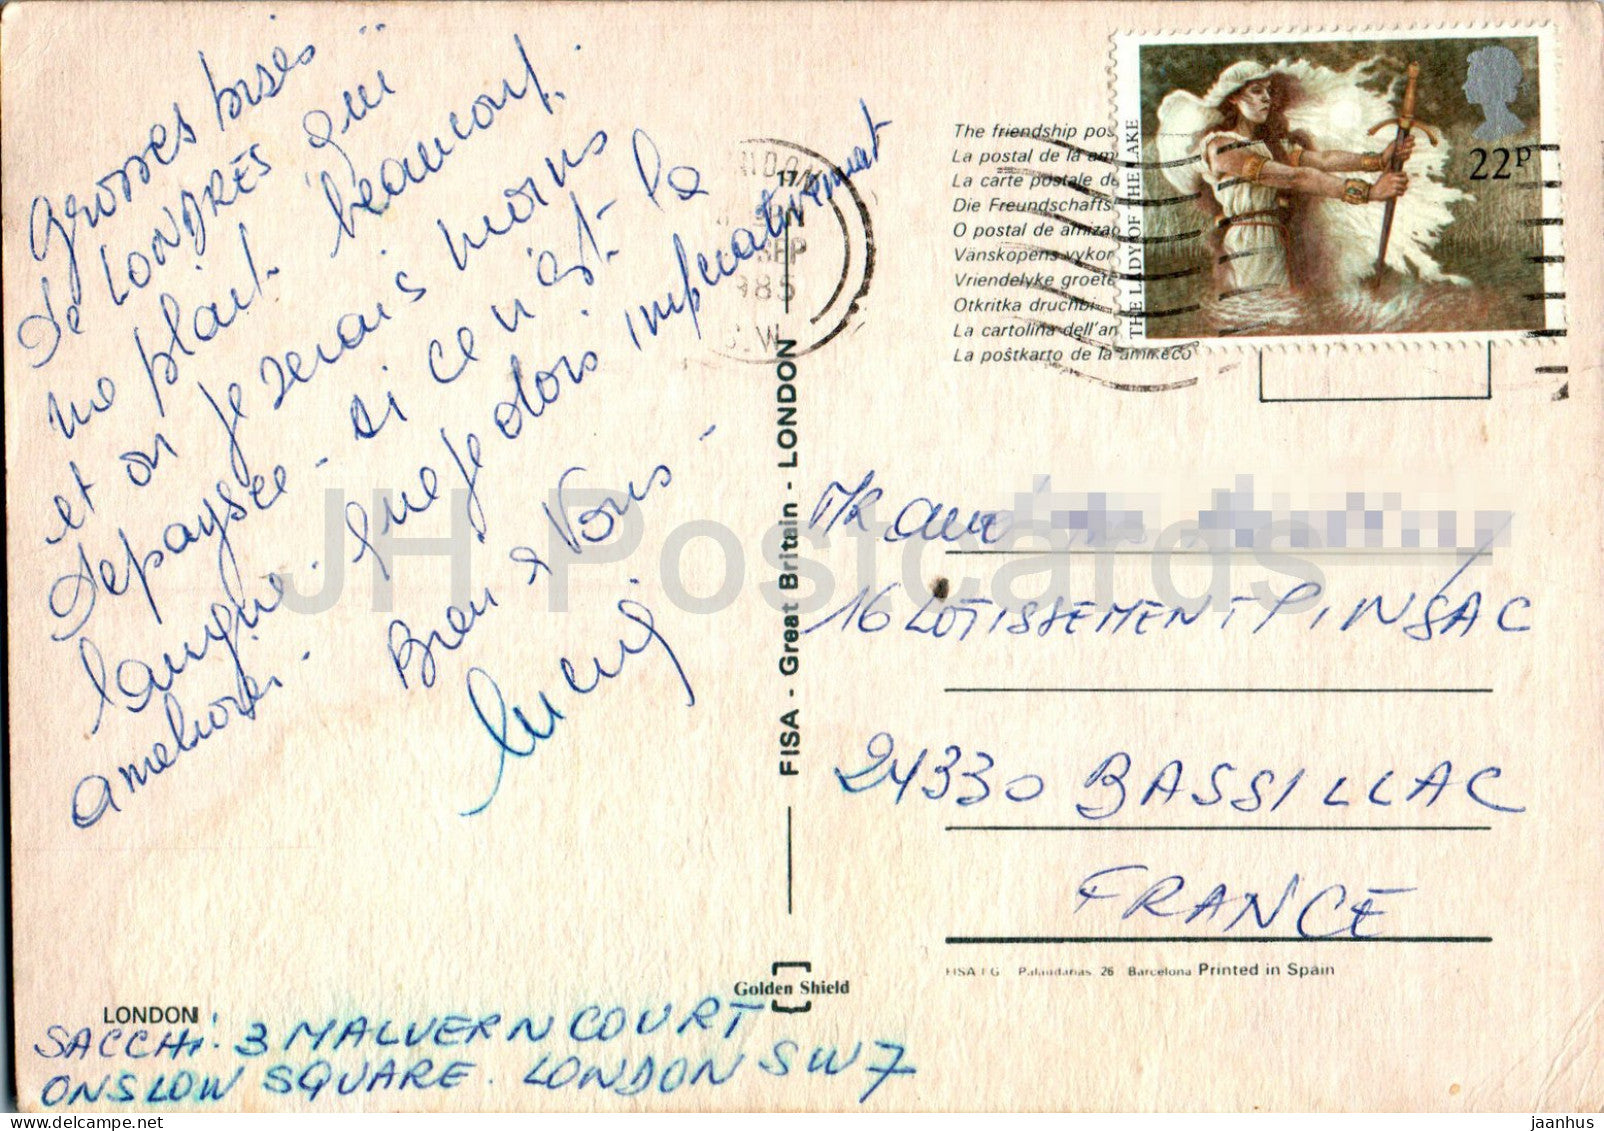 Grosses bises
de LONDRES qui
me plait beaucoup.
et où je serais moins
dépaysée - si ce n'est la
langue. que je dois impérativement
améliorer.
Bien à Vous -
THE LADY OF THE LAKE
22P
17
SEP
1985
S.W.
The friendship pos
La postal de la am
La carte postale de
Die Freundschafts
O postal de amizad
Vänskopens vykor
Vriendelyke groete
Otkritka druchbi
La cartolina dell'am
La poŝtkarto de la amikeco
FISA - Great Britain - LONDON
16 LOTISSEMENT PINSAC
24330 BASSILLAC
FRANCE
FISA I G Palaudarias 26 Barcelona Printed in Spain
Golden Shield
LONDON
SACCHI. 3 MALVERN COURT
ONSLOW SQUARE. LONDON SW7
JH Postcards
jaanhus
delcampe.net